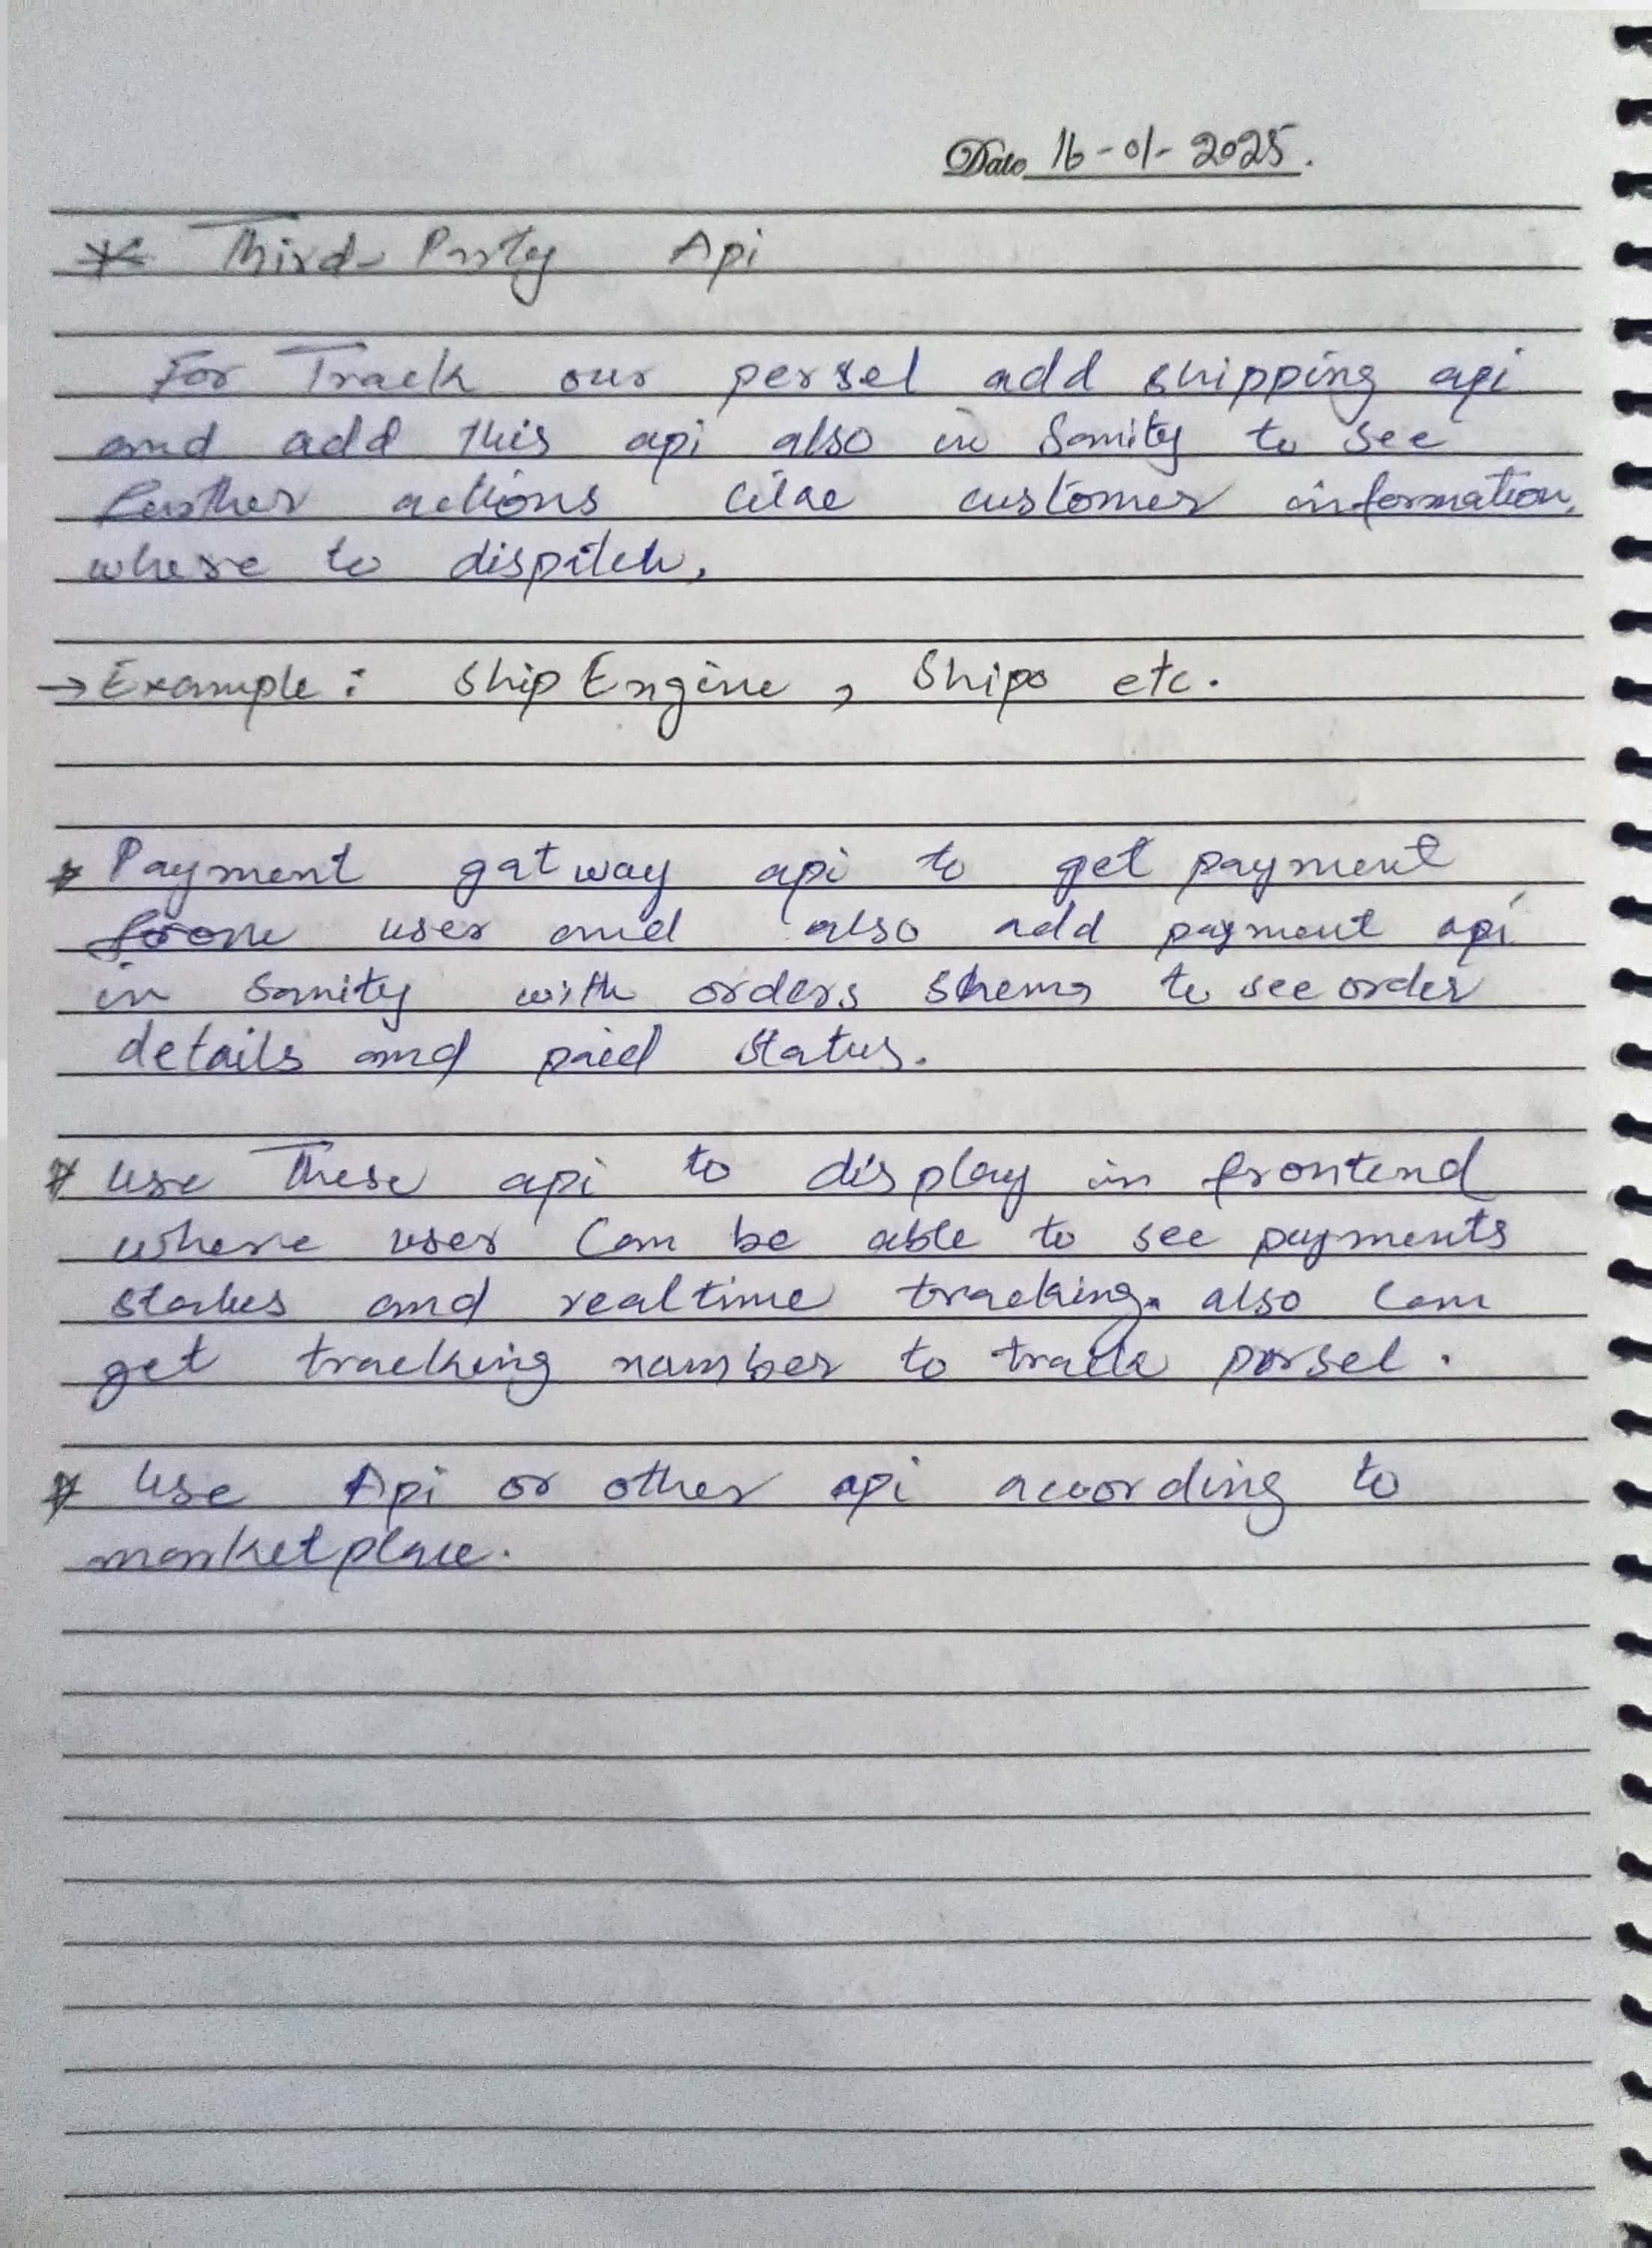 Date 16-01-2025.
* Third-Party Api
For Track our persel add shipping api
and add this api also in Sanity to see
further actions like customer information,
where to dispitch,
→ Example: ShipEngine, Shipo etc.
* Payment gatway api to get payment
from user and also add payment api
in Sanity with orders shema to see order
details and paid status.
* Use These api to display in frontend
where user can be able to see payments
status and realtime tracking. also can
get tracking number to track parsel.
* Use Api or other api according to
marketplace.